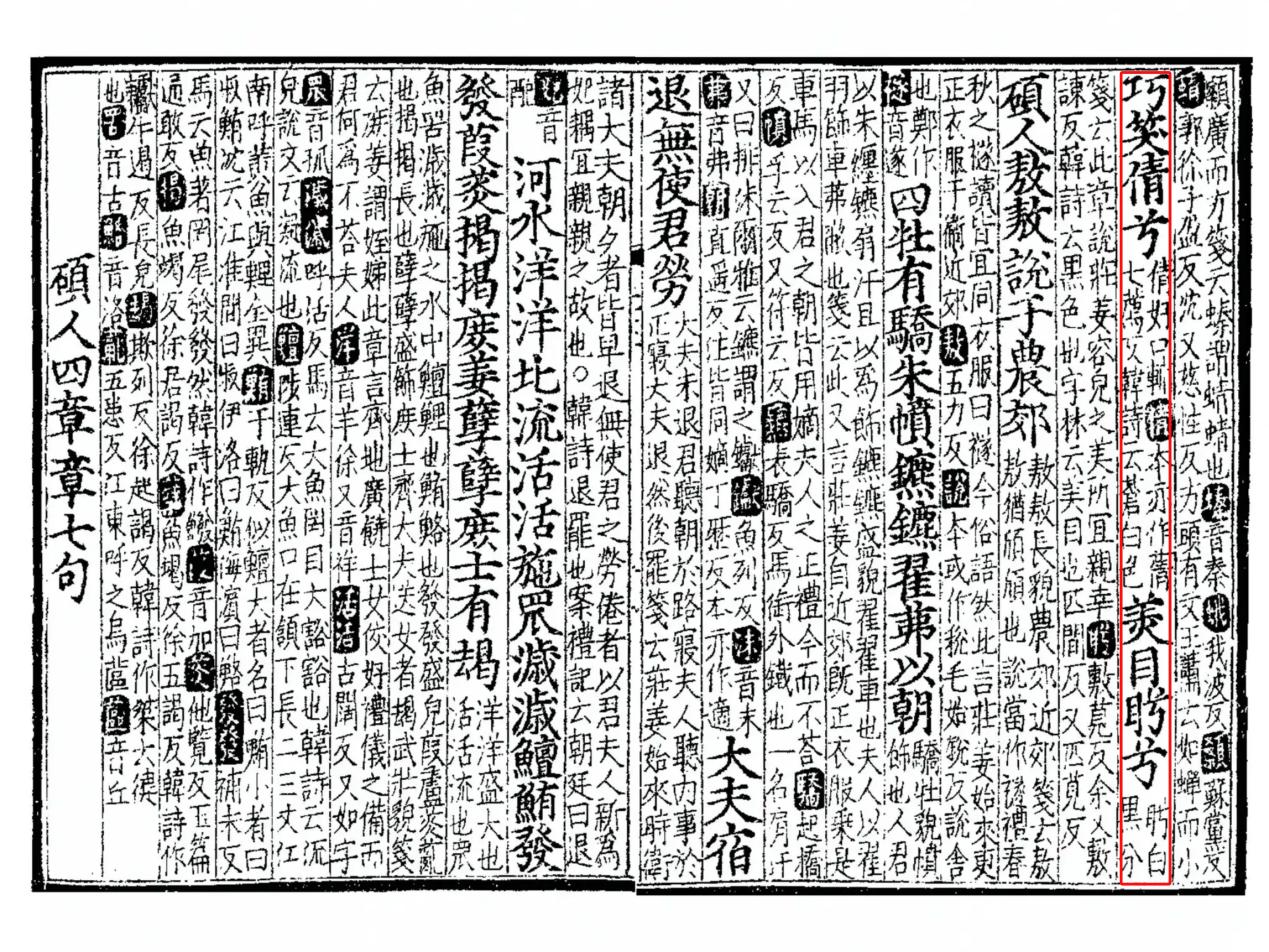 顙廣而方箋云螓謂蜻蜻也螓音秦蛾我波反顙蘇黨反
蜻郭徐子盈反沈又慈性反方頭有文王肅云如蟬而小
巧笑倩兮倩好口輔倩本亦作蒨七薦反韓詩云蒼白色美目盻兮盻白黑分
箋云此章說莊姜容皃之美所宜親幸盻敷莧反徐又敷
諫反韓詩云黑色也字林云美目也匹間反又匹莧反
碩人敖敖說于農郊敖敖長貌農郊近郊箋云敖敖猶頎頎也說當作禭禮春
秋之禭讀皆宜同衣服曰禭今俗語然此言莊姜始來更
正衣服于衛近郊敖五刀反說本或作稅毛始銳反說舍
也鄭作禭音遂四牡有驕朱幩鑣鑣翟茀以朝驕牡貌幩飾也人君
以朱纏鑣扇汗且以為飾鑣鑣盛貌翟翟車也夫人以翟
羽飾車茀蔽也箋云此又言莊姜自近郊既正衣服乘是
車馬以入君之朝皆用嫡夫人之正禮今而不荅驕起橋
反幩孚云反又符云反鑣表驕反馬銜外鐵也一名扇汗
又曰排沬爾雅云鑣謂之钀钀魚列反沬音末
茀音弗朝直遥反注皆同嫡丁歷反本亦作適大夫宿
退無使君勞大夫未退君聽朝於路寢夫人聽內事於正寢大夫退然後罷箋云莊姜始來時衛
諸大夫朝夕者皆早退無使君之勞倦者以君夫人新為
妃耦宜親親之故也○韓詩退罷也案禮記云朝廷曰退
妃音配河水洋洋北流活活施罛濊濊鱣鮪發
發葭菼揭揭庶姜孽孽庶士有朅洋洋盛大也活活流也罛
魚罟濊濊施之水中鱣鯉也鮪鮥也發發盛皃葭蘆菼薍
也揭揭長也孽孽盛飾庶士齊大夫送女者朅武壯貌箋
云庶姜謂姪娣此章言齊地廣饒士女佼好禮儀之備而
君何為不荅夫人洋音羊徐又音祥活活古闊反又如字
罛音孤濊濊呼活反馬云大魚罔目大豁豁也韓詩云流
皃說文云凝流也鱣陟連反大魚口在頷下長二三丈江
南呼黃魚與鯉全異鮪于軌反似鱣大者名曰鮪小者曰
叔鮪沈云江淮間曰叔伊洛曰鮪海濱曰鮥發發補末反
馬云魚著罔尾發發然韓詩作鱍葭音加菼他覽反玉篇
通敢反揭魚竭反徐居謁反孽魚竭反徐五謁反韓詩作
轙牛遏反長皃朅欺列反徐起謁反韓詩作桀云健
也罟音古鮥音洛薍五患反江東呼之烏蓲蓲音丘
碩人四章章七句